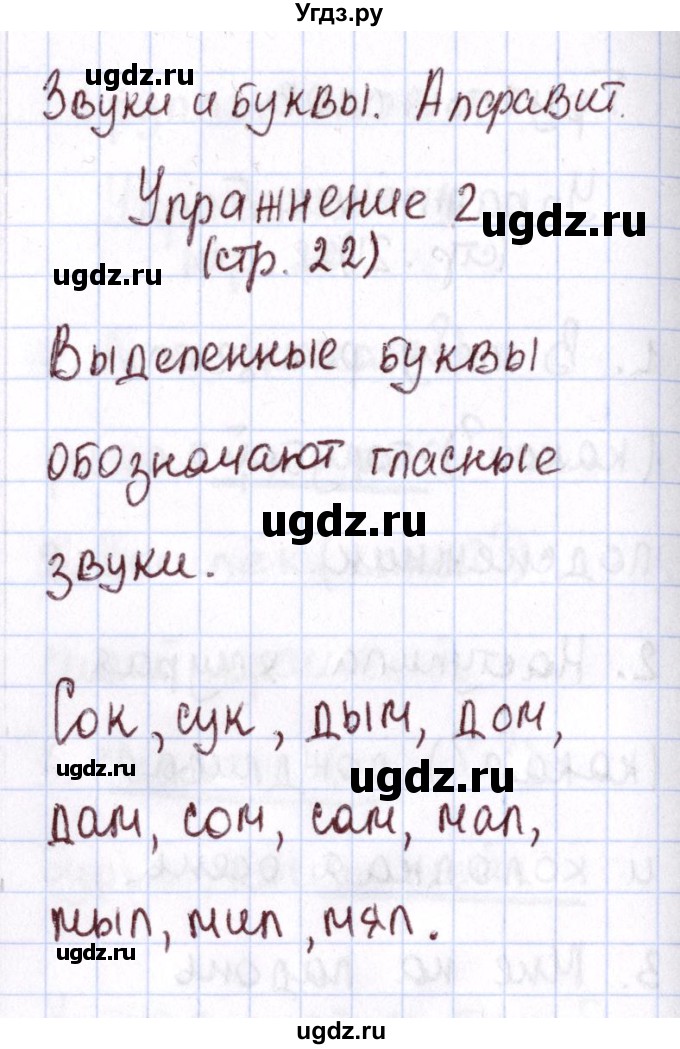 Угдз.ру
ugdz.ru
Звуки и буквы. Алфавит.
Упражнение 2
ugdz.ru
(стр. 22)
ugdz.ru
Выделенные буквы
обозначают гласные
ugdz.ru
звуки.
Сок, сук, дым, дом,
ugdz.ru
ugdz.ru
дам, сом, сам, мал,
мыл, мил, мял.
ugdz.ru
ugdz.ru